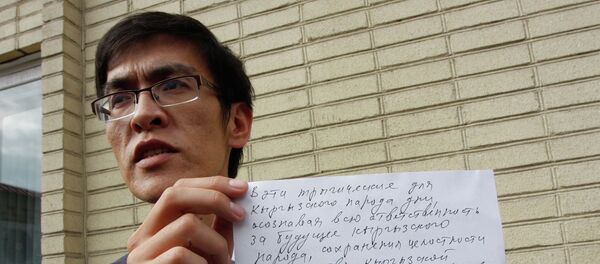 В эти трагические для
Кыргызского народа дни,
осознавая всю ответственность
за будущее кыргызского
народа, сохранения целостности
Кыргызской